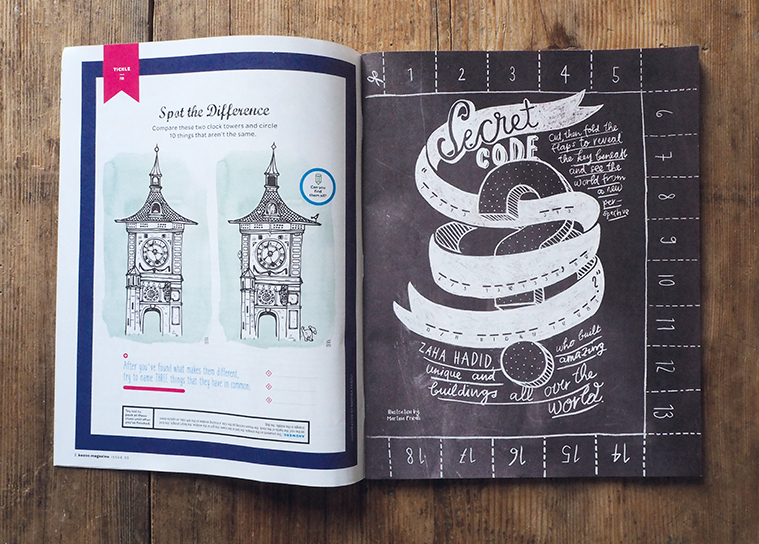 TICKLE
Spot the Difference
Compare these two clock towers and circle
10 things that aren't the same.
Can you
find
them all?
After you've found what makes them different,
try to name THREE things that they have in common.
Try not to
peek at these
clues until after
you've finished.
ANSWER
kazoo magazine ISSUE
1 2 3 4 5
6
7
8
9
10
11
12
13
14
15
16
17
18
Secret
CODE
Cut then fold the
flaps to reveal
the key beneath
and see the
world from
a new
per-
spective
?
ZAHA HADID
who built
unique and amazing
buildings all over the
world.
Illustration by